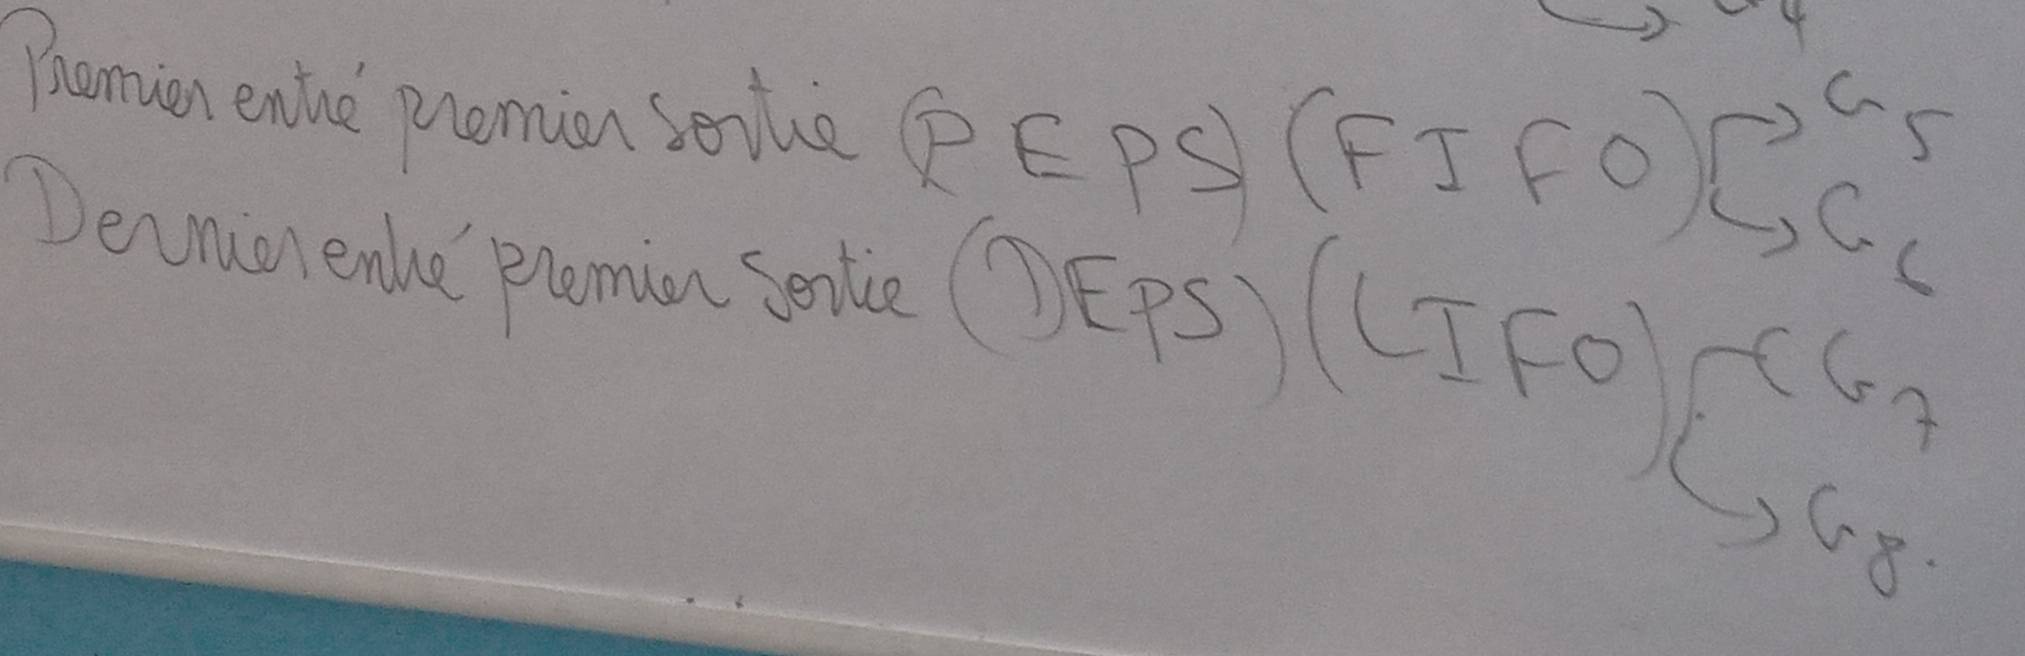 G4
Premier entré premier sortie (PEPS) (FIFO) → G5
→ G6
Dernier entré premier sortie (DEPS) (LIFO) G7
→ G8.